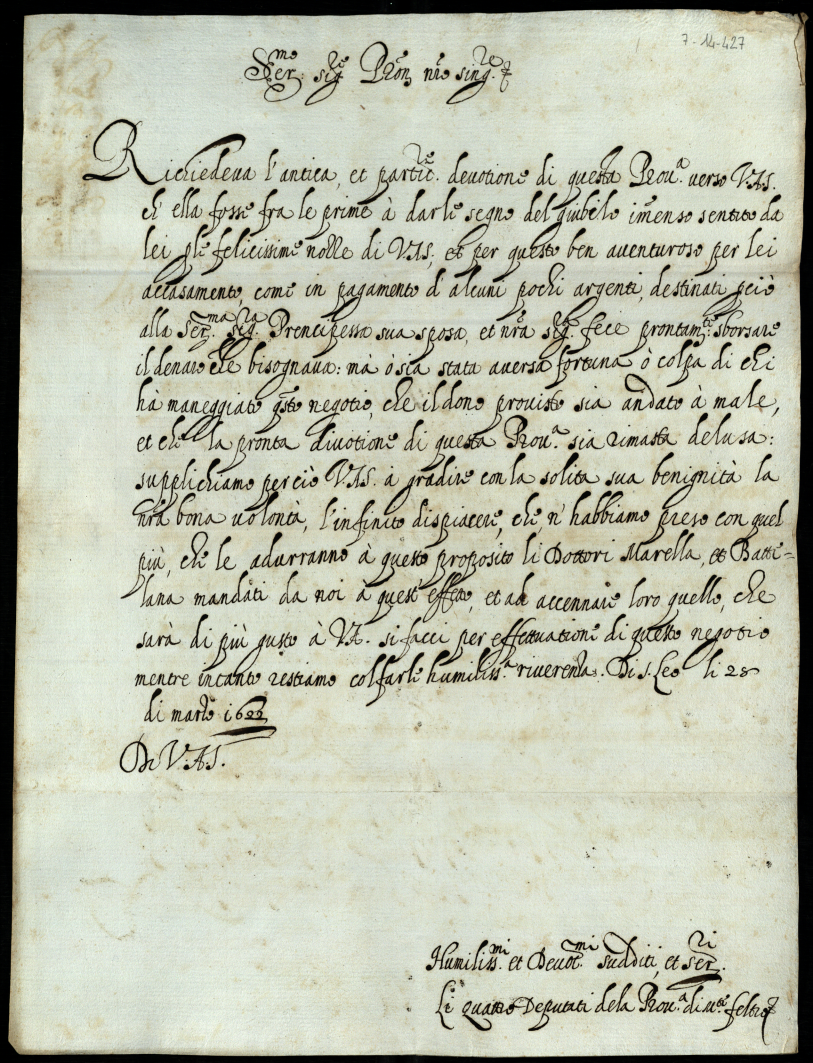 7-14-427
Ser.me sig.re Pron nro sing.re
Richiedeva l'antica, et partic.re devotione di questa Prou.a verso VAS.
ch'ella fosse fra le prime à darle segno del giubilo imenso sentito da
lei p le felicissime nozze di VAS, et per questo ben aventuroso per lei
accasamento, come in pagamento d'alcuni pochi argenti, destinati pciò
alla Ser.ma Sig.ra Prencipessa sua sposa, et nrã sig.ra fece prontam.te sborsare
il denaro che bisognaua: mà ò sia stata aversa fortuna ò colpa di chi
hà maneggiato qsto negotio, che il dono provisto sia andato à male,
et che la pronta divotione di questa Prou.a sia rimasta delusa:
supplichiamo perciò VAS. à gradire con la solita sua benignità la
nrã bona volontà, l'infinito dispiacere, che n'habbiamo preso con quel
più, che le adurranno à questo proposito li Dottori Marella, et Batti-
lana mandati da noi à quest'effetto, et ad accennare loro quello, che
sarà di più gusto à VA. si facci per effettuatione di questo negotio
mentre intanto restiamo col farle humiliss.a riverenza. Di S. Leo li 28
di marzo 1622
Di V.A.S.
Humiliss.mi et Deuot.mi sudditi, et ser.ri
Li quattro Deputati dela Prou.a di M.te feltro